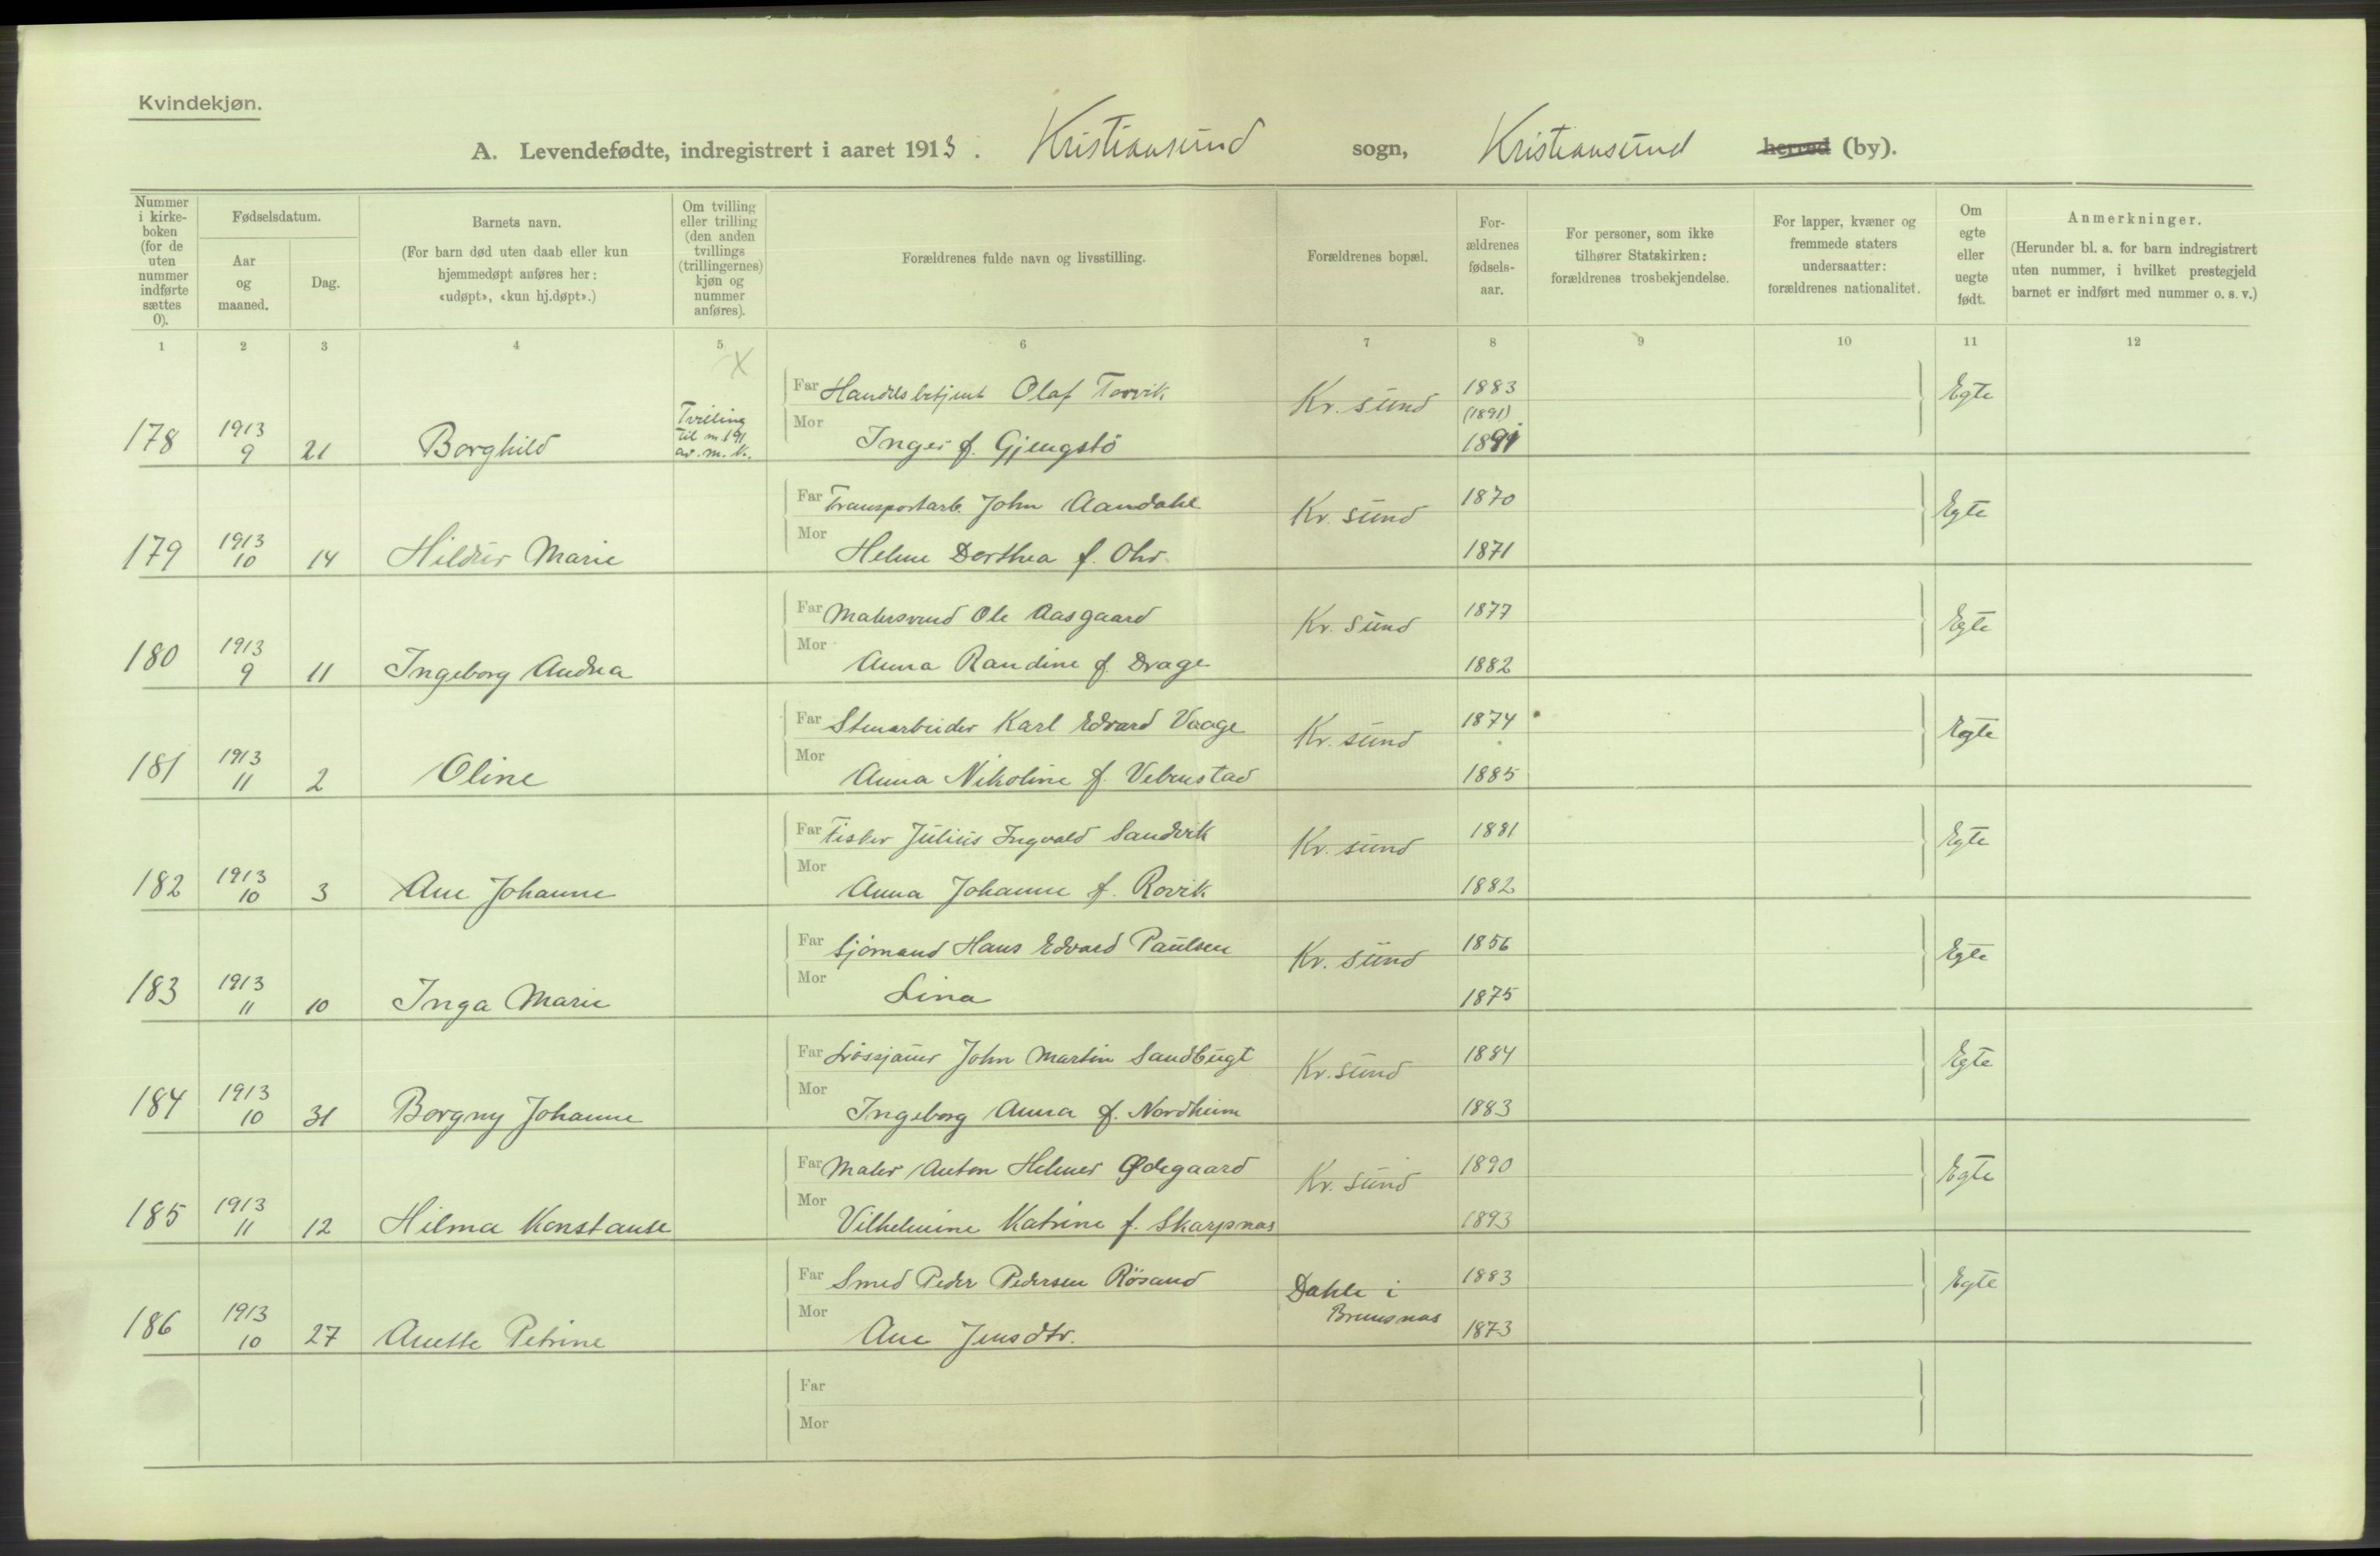 Kvindekjøn.
A. Levendefødte, indregistrert i aaret 1913. Kristiansund sogn, Kristiansund herred (by).
Nummer i kirke-boken (for de uten nummer indførte sættes 0).
Fødselsdatum.
Aar og maaned.
Dag.
Barnets navn.
(For barn død uten daab eller kun hjemmedøpt anføres her: «udøpt», «kun hj.døpt».)
Om tvilling eller trilling (den anden tvillings (trillingernes) kjøn og nummer anføres).
Forældrenes fulde navn og livsstilling.
Forældrenes bopæl.
For-ældrenes fødsels-aar.
For personer, som ikke tilhører Statskirken: forældrenes trosbekjendelse.
For lapper, kvæner og fremmede staters undersaatter: forældrenes nationalitet.
Om egte eller uegte født.
Anmerkninger.
(Herunder bl. a. for barn indregistrert uten nummer, i hvilket prestegjeld barnet er indført med nummer o. s. v.)
1 2 3 4 5 6 7 8 9 10 11 12
X
Far Handelsbetjent Olaf Torvik Kr. sund 1883 Egte
(1891)
178 1913 9 21 Borghild Tvilling til no 191 av m. k. Mor Inger f. Gjengstø 1891
Far Transportarb. John Aandahl Kr. sund 1870 Egte
179 1913 10 14 Hildur Marie Mor Helene Dorthea f. Ohr 1871
Far Malersvend Ole Aasgaard Kr. sund 1877 Egte
180 1913 9 11 Ingeborg Andrea Mor Anna Randine f. Drage 1882
Far Stenarbeider Karl Edvard Vaage Kr. sund 1874 Egte
181 1913 11 2 Oline Mor Anna Nikoline f. Vebenstad 1885
Far Fisker Julius Ingvald Sandvik Kr. sund 1881 Egte
182 1913 10 3 Ane Johanne Mor Anna Johanne f. Rovik 1882
Far Sjømand Hans Edvard Paulsen Kr. sund 1856 Egte
183 1913 11 10 Inga Marie Mor Lina 1875
Far Løssjauer John Martin Sandbugt Kr. sund 1884 Egte
184 1913 10 31 Borgny Johanne Mor Ingeborg Anna f. Nordheim 1883
Far Maler Anton Helmer Ødegaard Kr. sund 1890 Egte
185 1913 11 12 Hilma Konstanse Mor Vilhelmine Katrine f. Skarpnas 1893
Far Smed Peder Pedersen Røsand Dahle i Bremsnas 1883 Egte
186 1913 10 27 Anette Petrine Mor Ane Jensdtr. 1873
Far
Mor